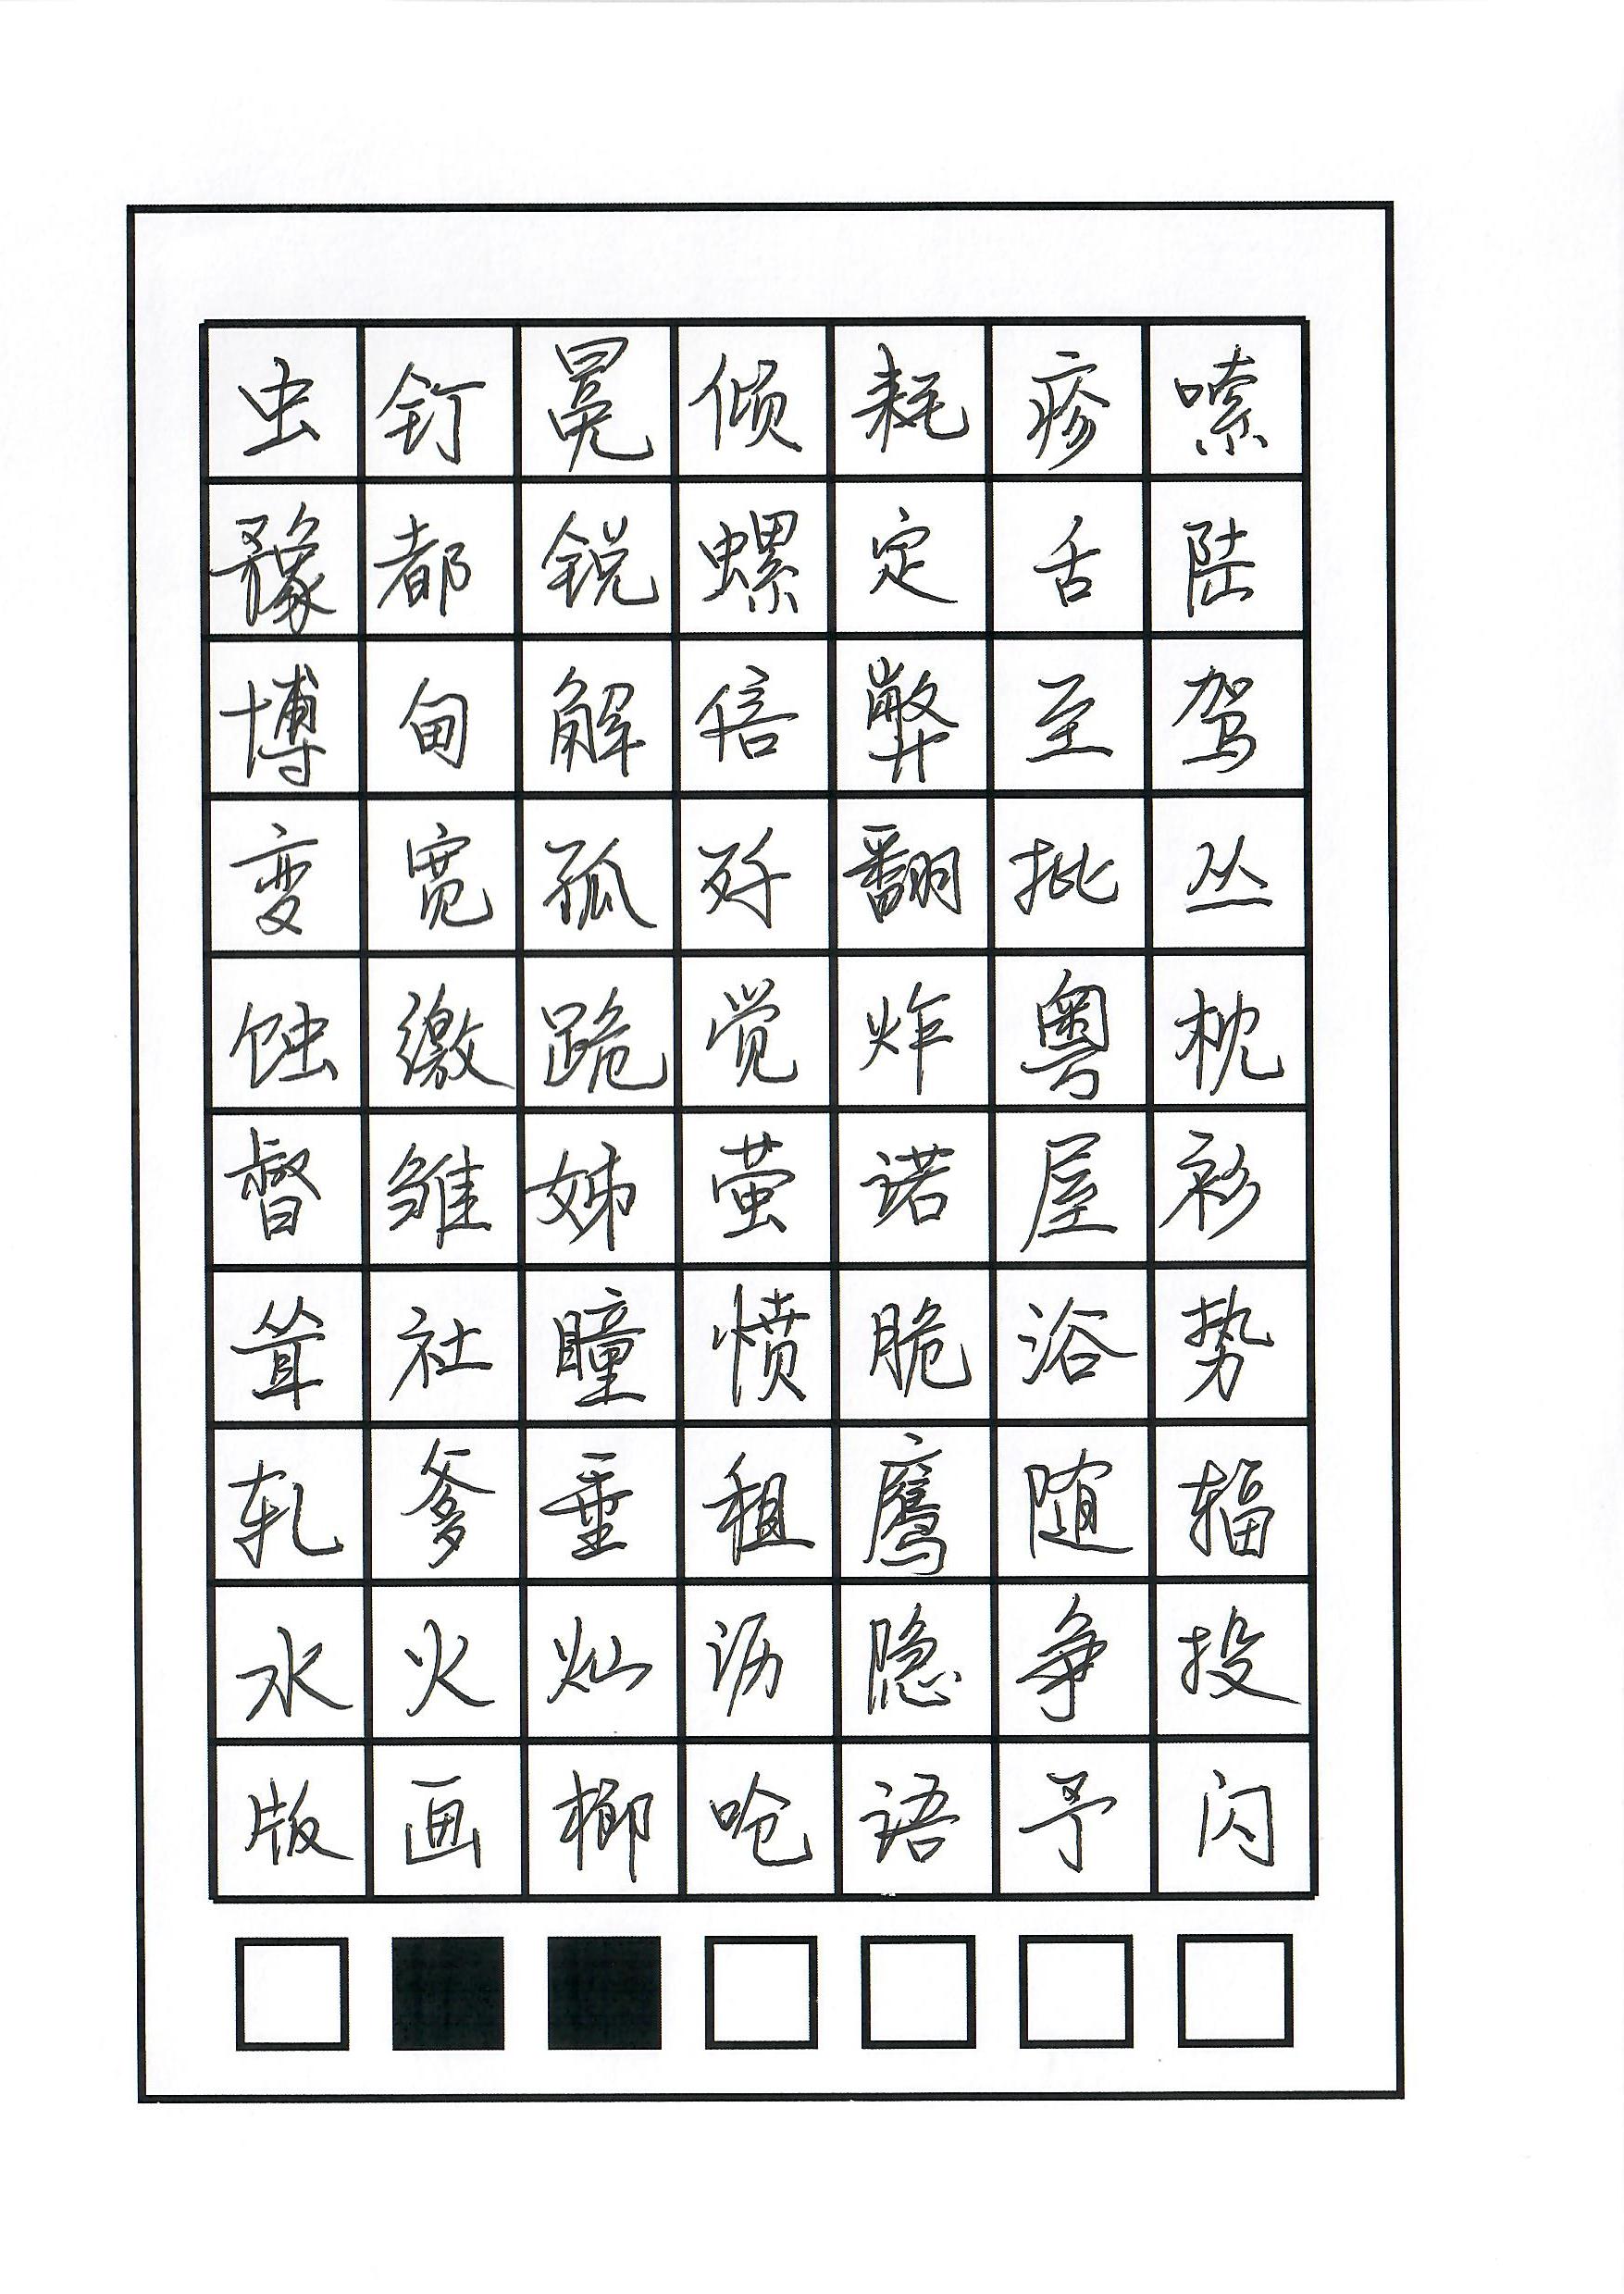 虫钉晃倾耗疹嗦
豫都锐螺定舌陆
博甸解倍弊至驾
变宽孤歼翻批丛
蚀缴跪觉炸粤枕
督雏姊萤诺屋衫
耸社瞳愤脆浴势
轧爹垂租鹰随辐
水火灿沥隐争投
版画榔呛语予闪